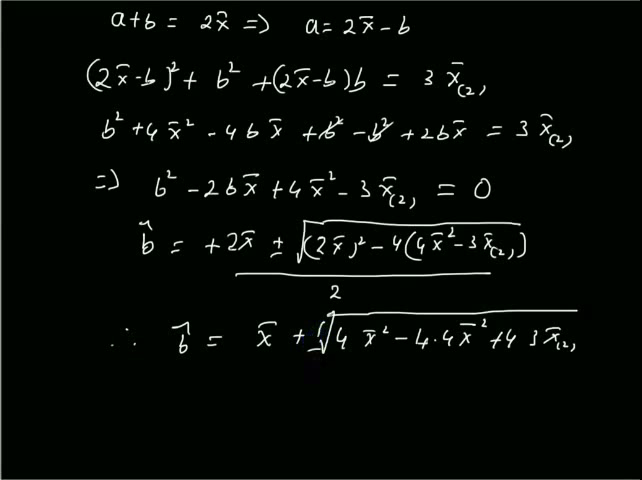 a+b = 2x̄ => a = 2x̄ - b
(2x̄-b)² + b² + (2x̄-b)b = 3 x̄(2),
b² + 4x̄² - 4bx̄ + b² - b² + 2bx̄ = 3 x̄(2),
=> b² - 2bx̄ + 4x̄² - 3x̄(2), = 0
b̂ = +2x̄ ± √(2x̄)² - 4(4x̄² - 3x̄(2),)
2
∴ b̂ = x̄ ± √4 x̄² - 4·4x̄² + 4 3x̄(2),